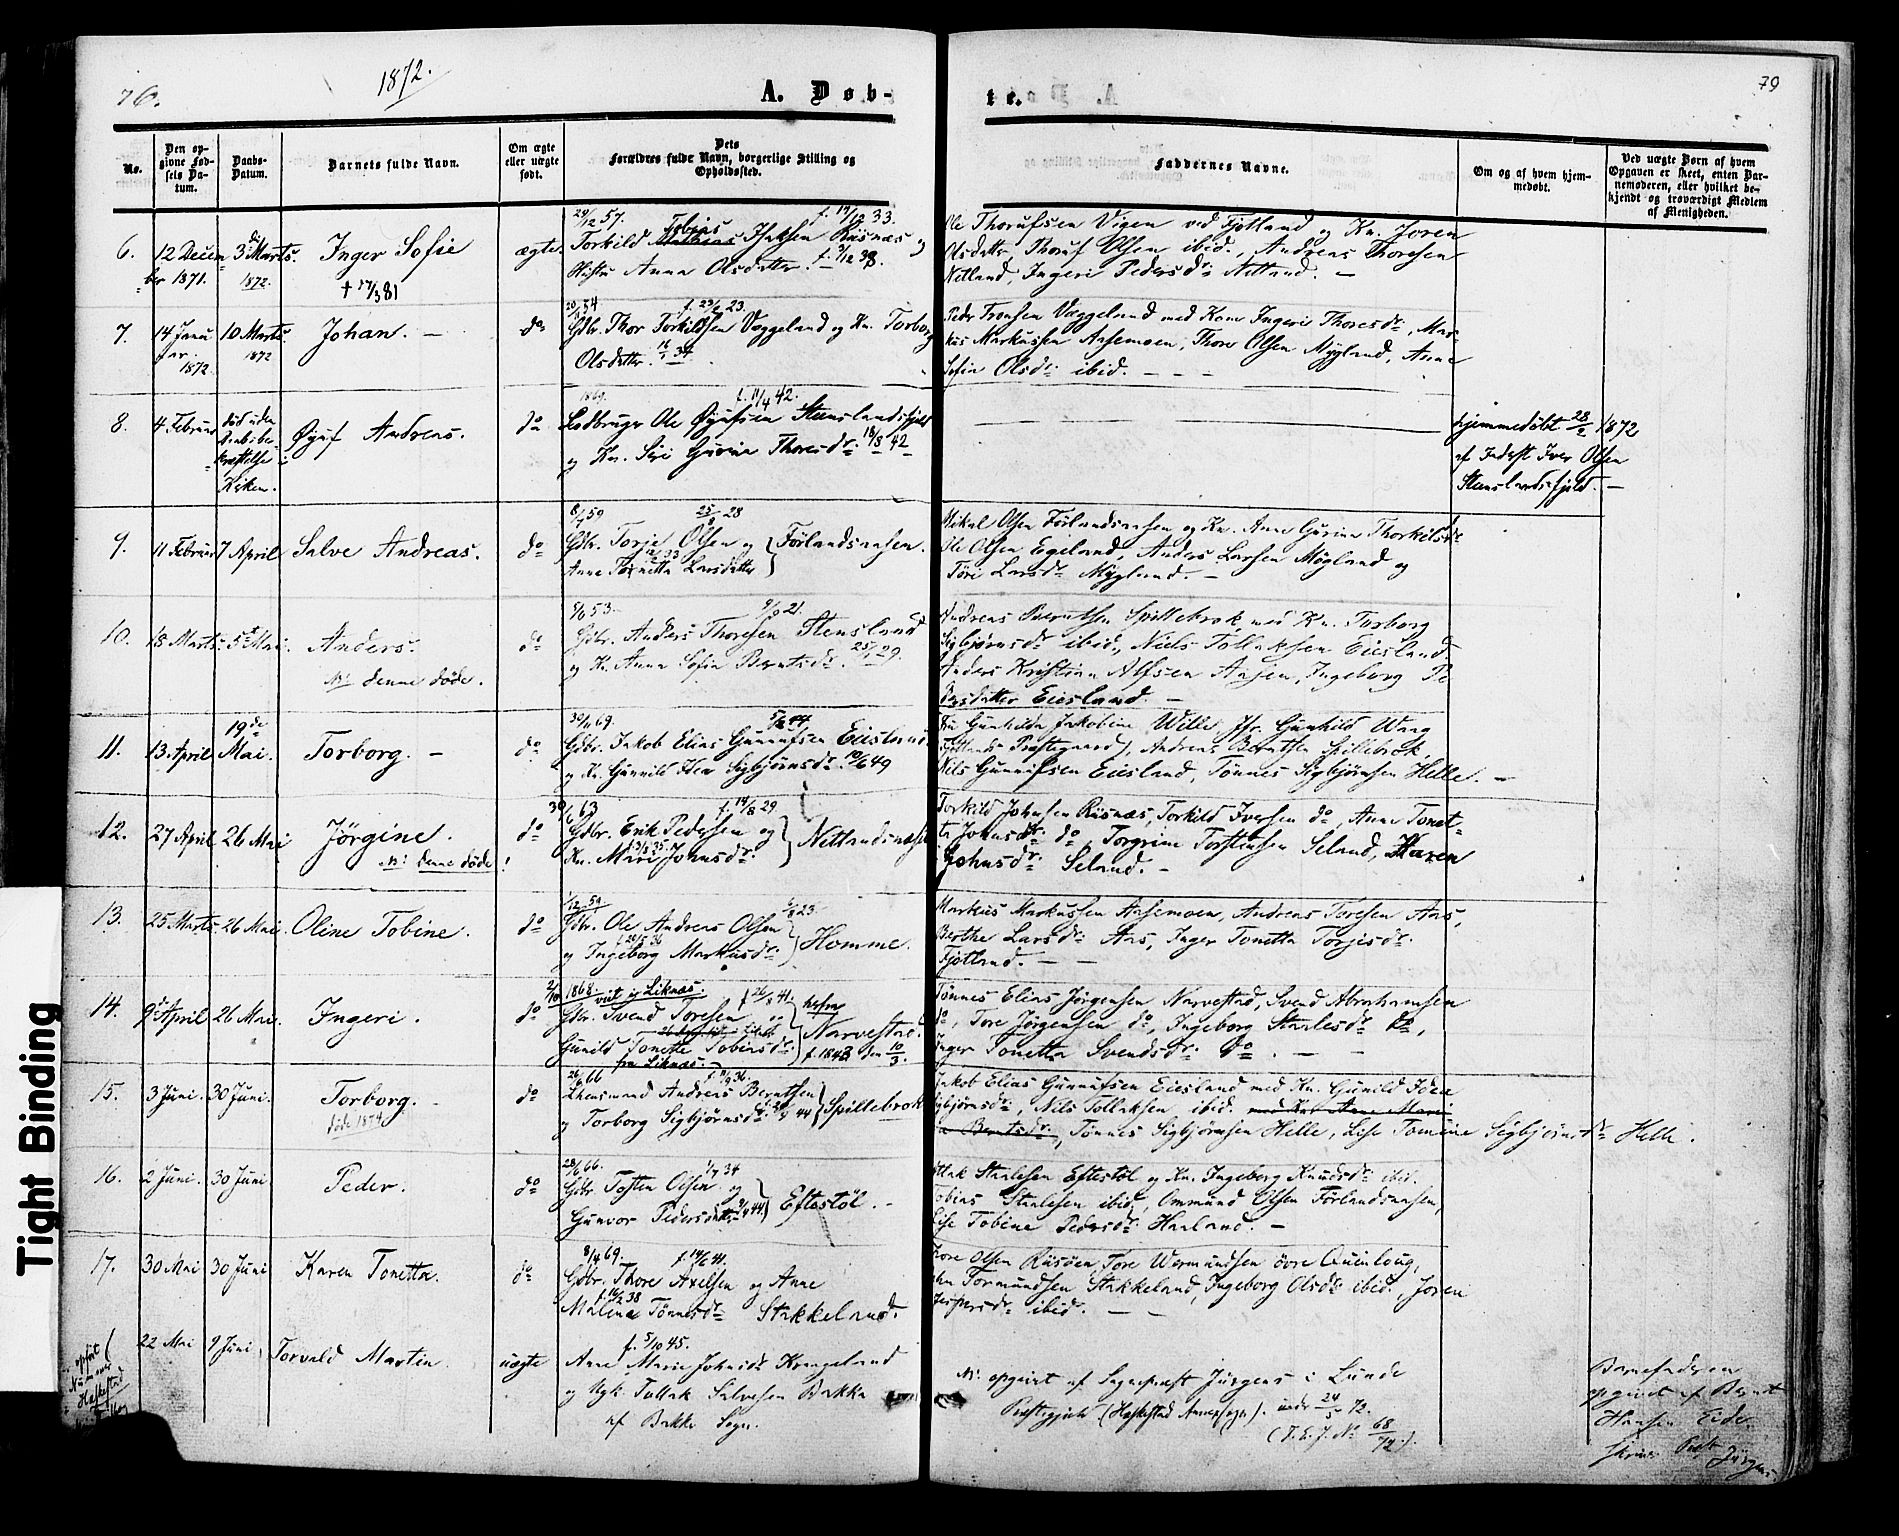 76.
1872.
A. Døb-
te.
79
No.
Den op-
givne Fød-
sels Da-
tum.
Daabs-
Datum.
Barnets fulde Navn.
Om ægte
eller uægte
født.
Dets
Forældres fulde Navn, borgerlige Stilling og
Opholdssted.
Faddernes Navne.
Om og af hvem hjem-
medøbt.
Ved uægte Børn af hvem
Opgaven er skeet, enten Bar-
nemoderen, eller hvilket be-
kjendt og troværdigt Medlem
af Menigheden.
6.
12 Decem
ber 1871.
3 Marts.
1872.
Inger Sofie
+ 17/3 81
ægte.
29/12 57. Tobias f. 14/12 33.
Torkild Mathias Isaksen Risnæs og
Hustru Anna Olsdatter. f. 9/12 38.
Ole Thorufsen Vigen ved Fjotland og Kn. Joren
Olsdatter, Thoruf Olsen ibid., Andreas Thoresen
Netland, Ingeri Pedersdr. Netland. –
7.
14 Janu
ar.
1872.
10 Marts.
1872
Johan. –
do
f. 23/6 23.
Gdbr. Thor Torkildsen Væggeland og Kn. Torborg
Olsdatter. 34.
Peder Tronsen Væggeland med Kone Ingeri Thoresdr., Mar-
kus Markussen Aasemoen, Thore Olsen Mygland, Anne
Sofie Olsdr. ibid. – – –
8.
4 Februar
død uden
Daabsbe-
kræftelse i
Kirken.
Øyuf Andreas.
do
1869. f. 11/4 42.
Ledbruger Ole Øyufsen Stenslandsfjeld
og Kn. Siri Gurine Thoresdr. 18/8 42
hjemmedøbt 28/2 1872
af Inderst Iver Olsen
Stenslandsfjeld. –
9.
11 Februar
7 April
Salve Andreas.
do
59 25/8 28
Gdbr. Torje Olsen og
Anne Tonetta Larsdatter
Førlandsaasen.
Mikal Olsen Førlandsaasen og Kn. Anne Gurine Thorkildsdr.
Ole Olsen Egeland, Anders Larsen Mygland og
Siri Larsdr. Mygland. –
10.
18 Marts.
5te Mai.
Anders.
NB denne døde.
do
53. 9/9 21.
Gdbr. Anders Thoresen Stensland
og K. Anna Sofia Berntsdr. 25/1 29.
Andreas Berntsen Spillebrok med Kn. Torborg
Sigbjørnsdr. ibid., Niels Tollaksen Eiesland.
Anders Kristian Alfsen Aasen, Ingeborg Pe
dersdatter Eiesland. –
11.
13 April
19de
Mai.
Torborg. –
do
69. 44.
Gdbr. Jakob Elias Gunnufsen Eiesland
og Kn. Gunnild Idea Sigbjørnsdr. 10/6 49
Fru Gunhilda Jakobine Wille, Jfr. Gunhild Waag
Fjotlands Præstegaard), Andreas Berntsen Spillebrok,
Nils Gunnufsen Eiesland, Tønnes Sigbjørnsen Helle. –
12.
27 April
26 Mai
Jørgine.
NB denne døde!
do
63 f. 14/8 29
Gdbr. Erik Pedersen og
Kn. Mari Johnsdr.
Netlandsnæset
Torkild Johnsen Risnæs, Torkild Iversen do, Anne Tonet-
te Johnsdr. do, Torgrim Torstensen Seland, Karen
Johnsdr. Seland. –
13.
25 Marts.
26 Mai.
Oline Tobine.
do
Gdbr. Ole Andreas Olsen
og Ingeborg Markusdr.
Homme.
Markus Markussen Aasemoen, Andreas Toresen Aas,
Berthe Larsdr. Aas, Inger Tonetta Torgisdr.
Fjotland. – –
14.
9 April
26 Mai.
Ingeri.
do
1868 viet i Liknæs. f. 41.
Gdbr. Svend Toresen og
Gunild Tonette Tobiasdr.
fra Liknæs.
Narvestad.
f. 1843 den 10/3.
Tønnes Elias Jørgensen Narvestad, Svend Abrahamsen
do, Tore Jørgensen do, Ingeborg Starlesdr. do,
Inger Tonetta Svendsdr. do. – –
15.
3 Juni.
30 Juni.
Torborg.
døde 1874
do
66 36.
Lensmand Andreas Berntsen
og Torborg Sigbjørnsdr. 44
Spillebrok
Jakob Elias Gunnufsen Eiesland med Kn. Gunild Idea
Sigbjørnsdr., Nils Tollaksen ibid. med Kn. Anne Marie
Berntsdr., Tønnes Sigbjørnsen Helle, Lise Tomine Sigbjørnsdr. Helle.
16.
2 Juni.
30 Juni
Peder.
do
28/6 66. 34
Gdbr Tosten Olsen og
Gunvor Pedersdatter 44
Eftestøl. –
Starlesen Eftestøl og Kn. Ingeborg Knudsdr. ibid.
Tobias Starlesen ibid, Ommund Olsen Førlandsaasen,
Lise Tobine Pedersdr. Haaland. –
17.
30 Mai
30 Juni
Karen Tonetta.
do
8/4 69. f. 14/6 41.
Gdbr. Thore Axelsen og Anne
Malene Tønnesdr. Stakkeland.
Thore Olsen Risøen, Tore Wermundsen øvre Quinlaug,
Tormundsen Stakkeland, Ingeborg Olsdr. ibid., Joren
Jespersdr. ibid. – –
opført
Nummer
Heskestad
22 Mai
9 Juni
Torvald Martin
uægte
f. 5/10 45.
Anne Marie Johnsdr. Krageland
og Ugk. Tollak Salvesen Bakke
af Bakke Sogn.
NB. opgivet af Sognepræst Jürgens i Lunde
Præstegjeld (Heskestad Annexsogn). under 24/5 72.
No 68/72.).
Barnefaderen
opgivet af Bernt
Hansen Eide
skriver Præst Jürgens.
Tight Binding